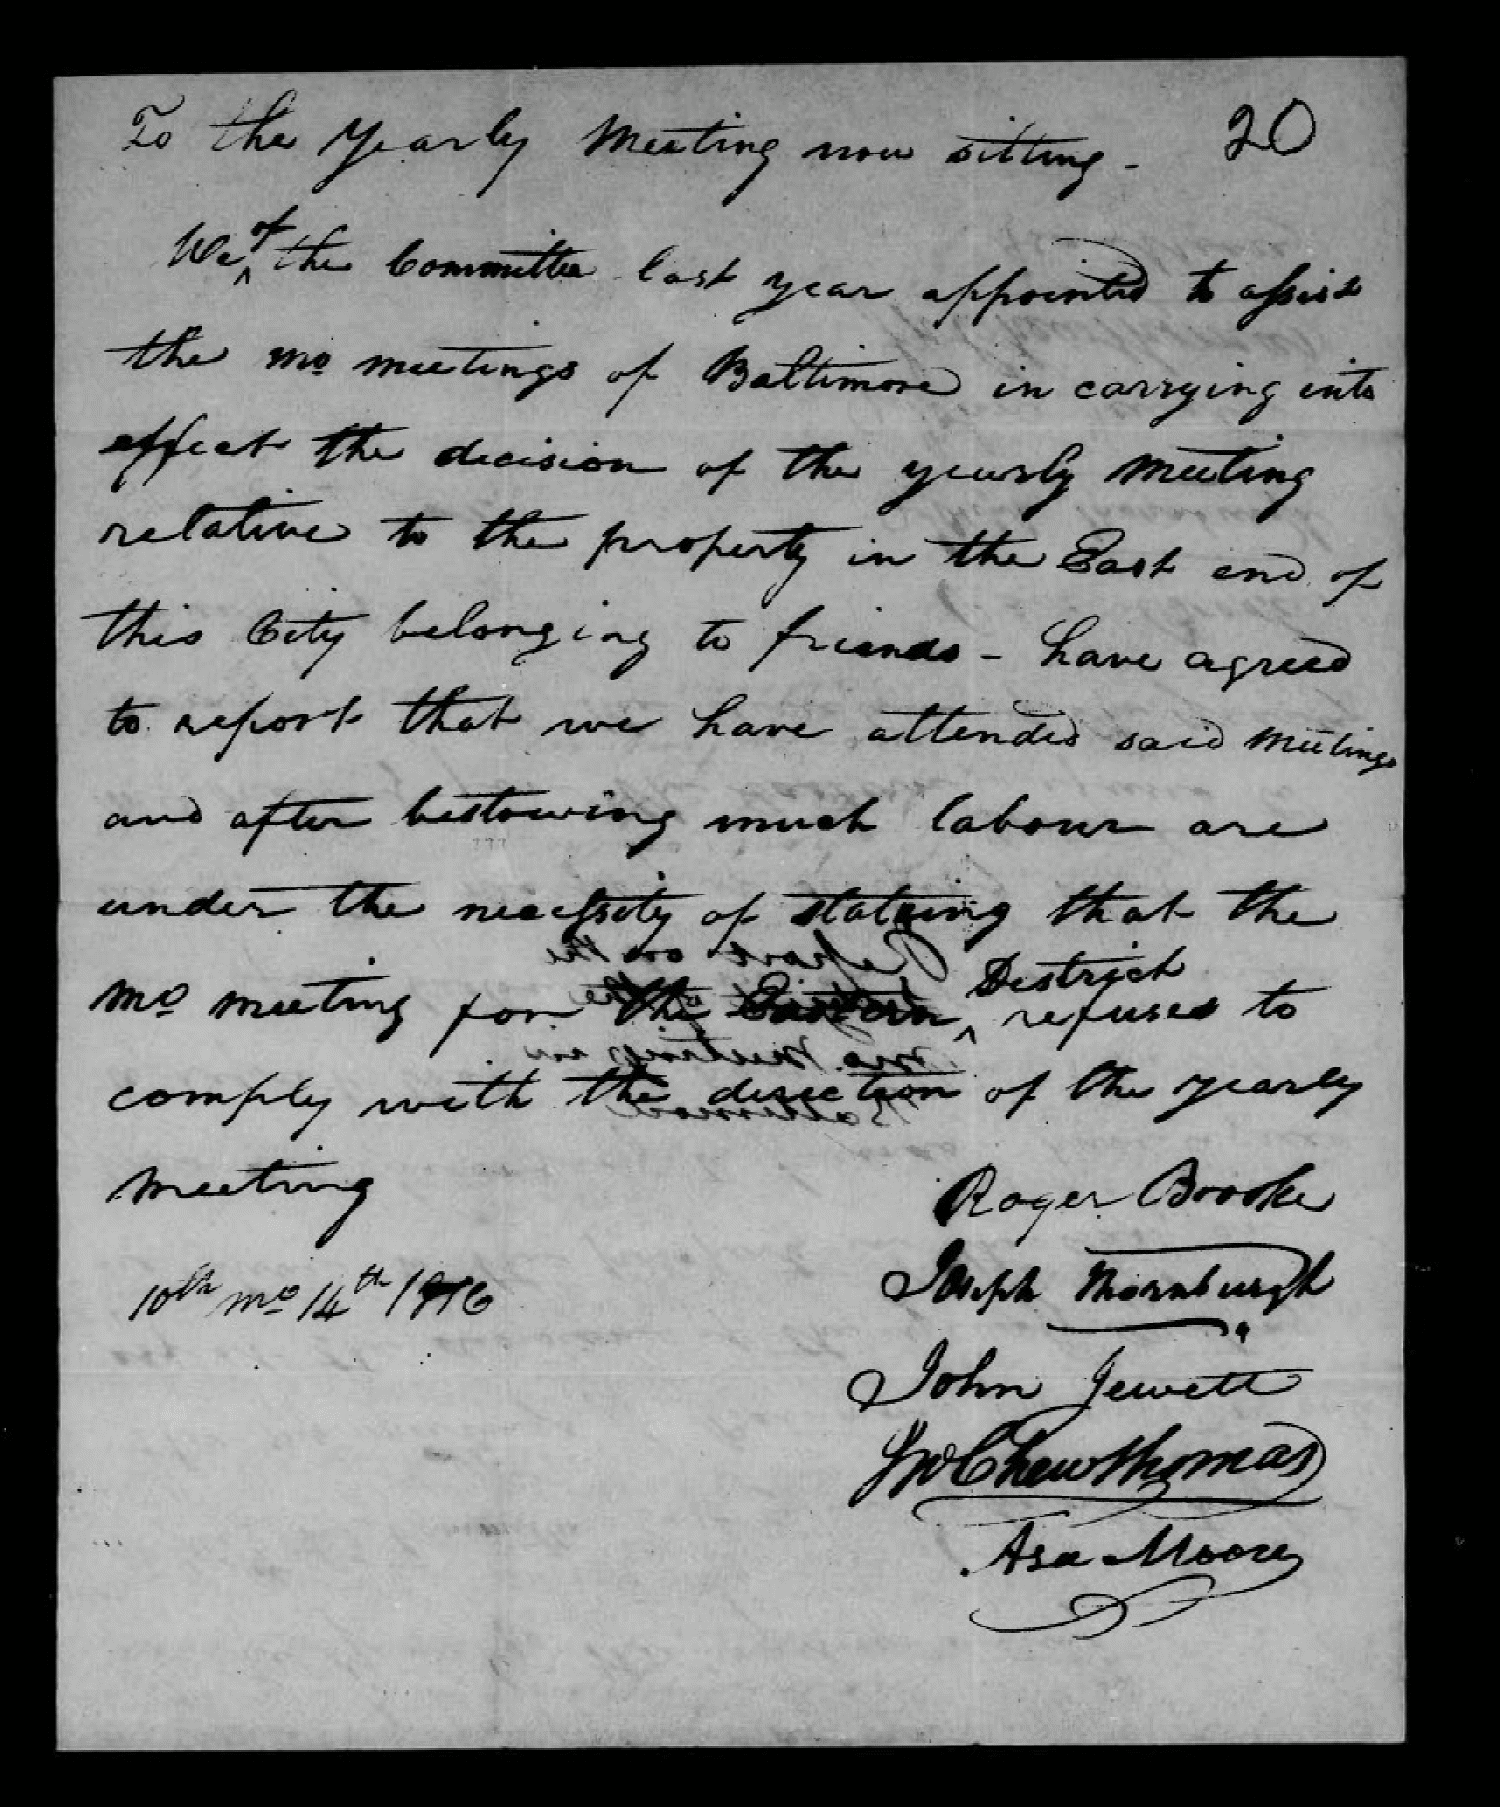 To the Yearly Meeting now sitting - 20
We of the Committee last year appointed to assist
the mo meetings of Baltimore in carrying into
effect the decision of the yearly Meeting
relative to the property in the East end of
this City belonging to friends - have agreed
to report that we have attended said Meetings
and after bestowing much labour are
under the necessity of stateing that the
Mo meeting for the Eastern District refuses to
comply with the direction of the yearly
Meeting
Roger Brooke
Joseph Thornburgh
10th mo 14th 1816
John Jewett
Jno Chew Thomas
Asa Moore
Report on the
mo. Meetings in
Baltimore